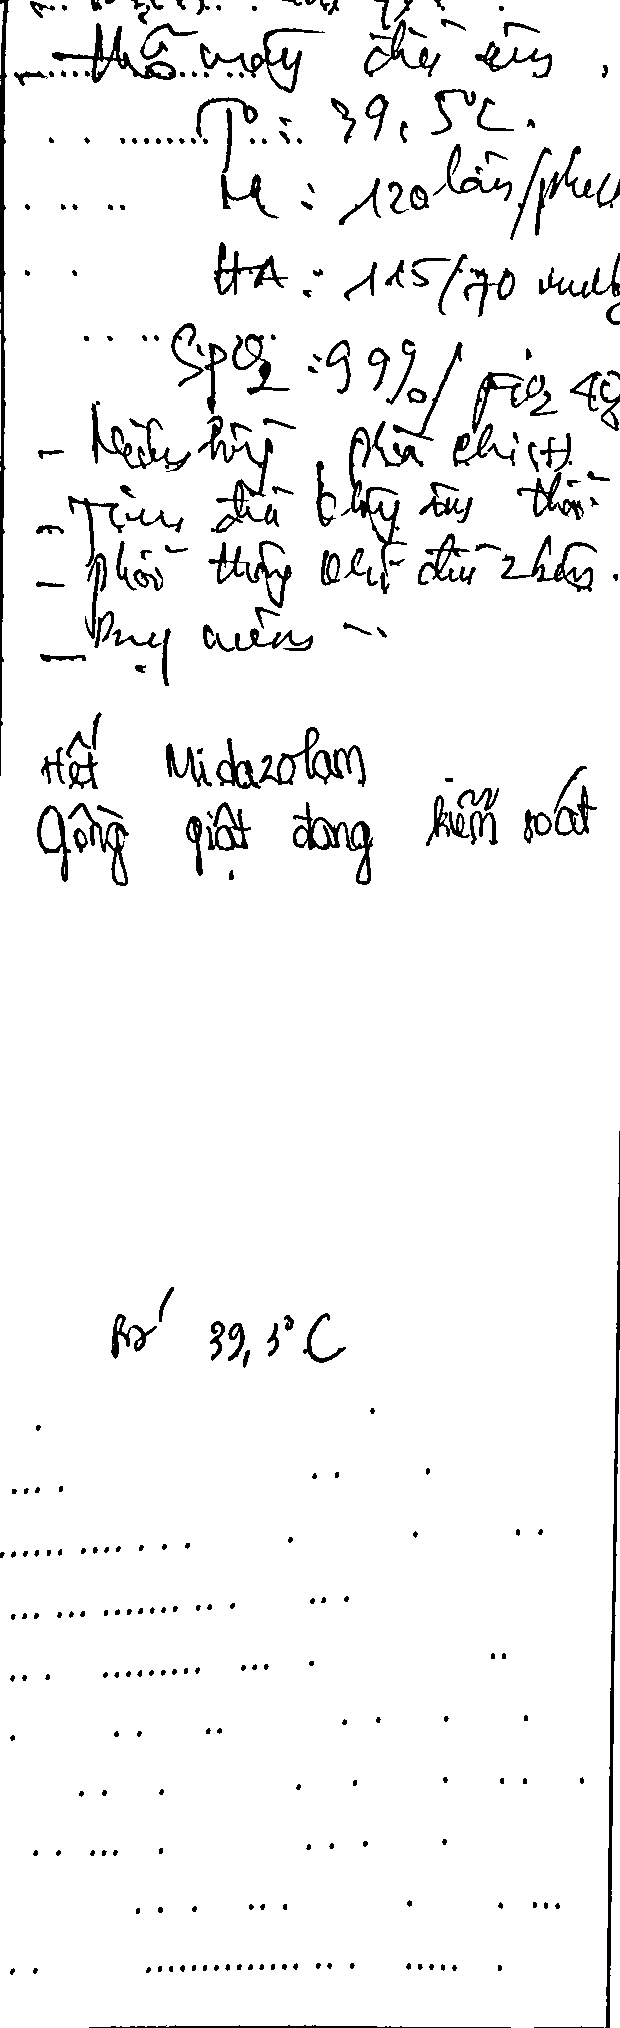 - thở máy đều êm.
T° : 39,5°C.
M : 120 lần/phút
HA : 115/70 mmHg
SpO2 : 99%/ FiO2 40
- Niêm hồng, phù chi (+)
- Tim đều không âm thổi
- phổi thông khí đều 2 bên.
- Bụng mềm
Hết Midazolam
Gồng giật đang kiểm soát
39,3°C